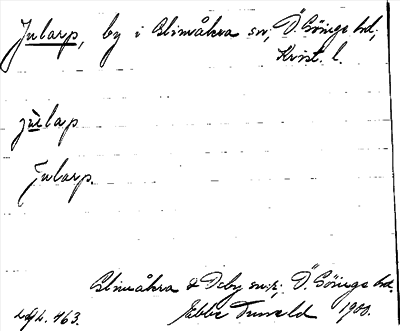 Jularp, by i Glimåkra sn; Ö. Göinge hd;
Krist. l.
jùlap
Jularp.
Glimåkra & Ö.by sn:r; Ö. Göinge hd.
Ebbe Tuneld 1900.